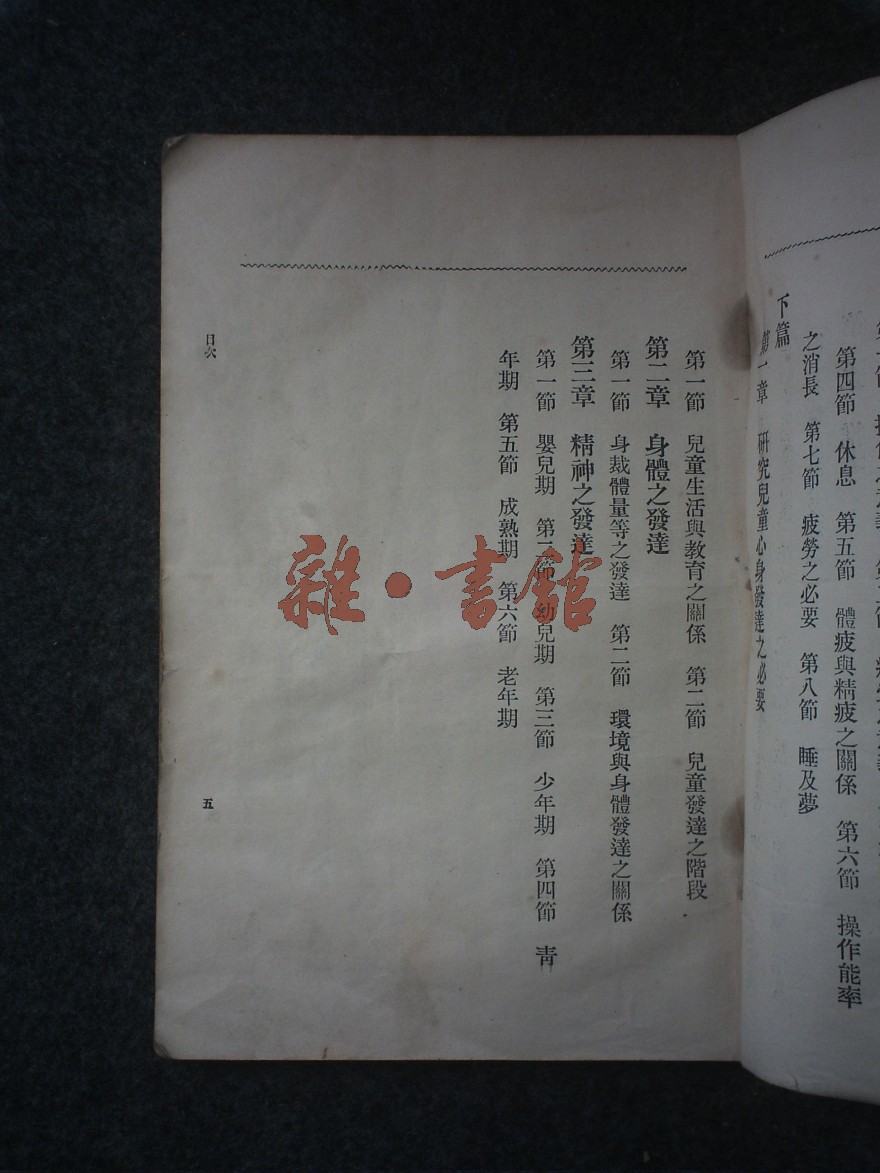 第四節　休息　第五節　體疲與精疲之關係　第六節　操作能率
之消長　第七節　疲勞之必要　第八節　睡及夢
下篇
第一章　研究兒童心身發達之必要
第一節　兒童生活與教育之關係　第二節　兒童發達之階段
第二章　身體之發達
第一節　身裁體量等之發達　第二節　環境與身體發達之關係
第三章　精神之發達
第一節　嬰兒期　第二節　幼兒期　第三節　少年期　第四節　青
年期　第五節　成熟期　第六節　老年期
目次
五
雜·書館